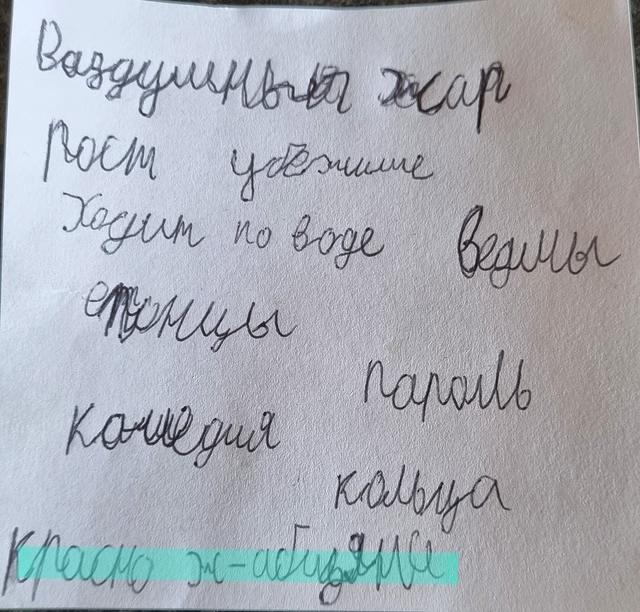 Воздушный жар
Рост убежише
Ходит по воде Ведмы
епонцы
пароль
Комедия
кольца
Красно ж-абизяна